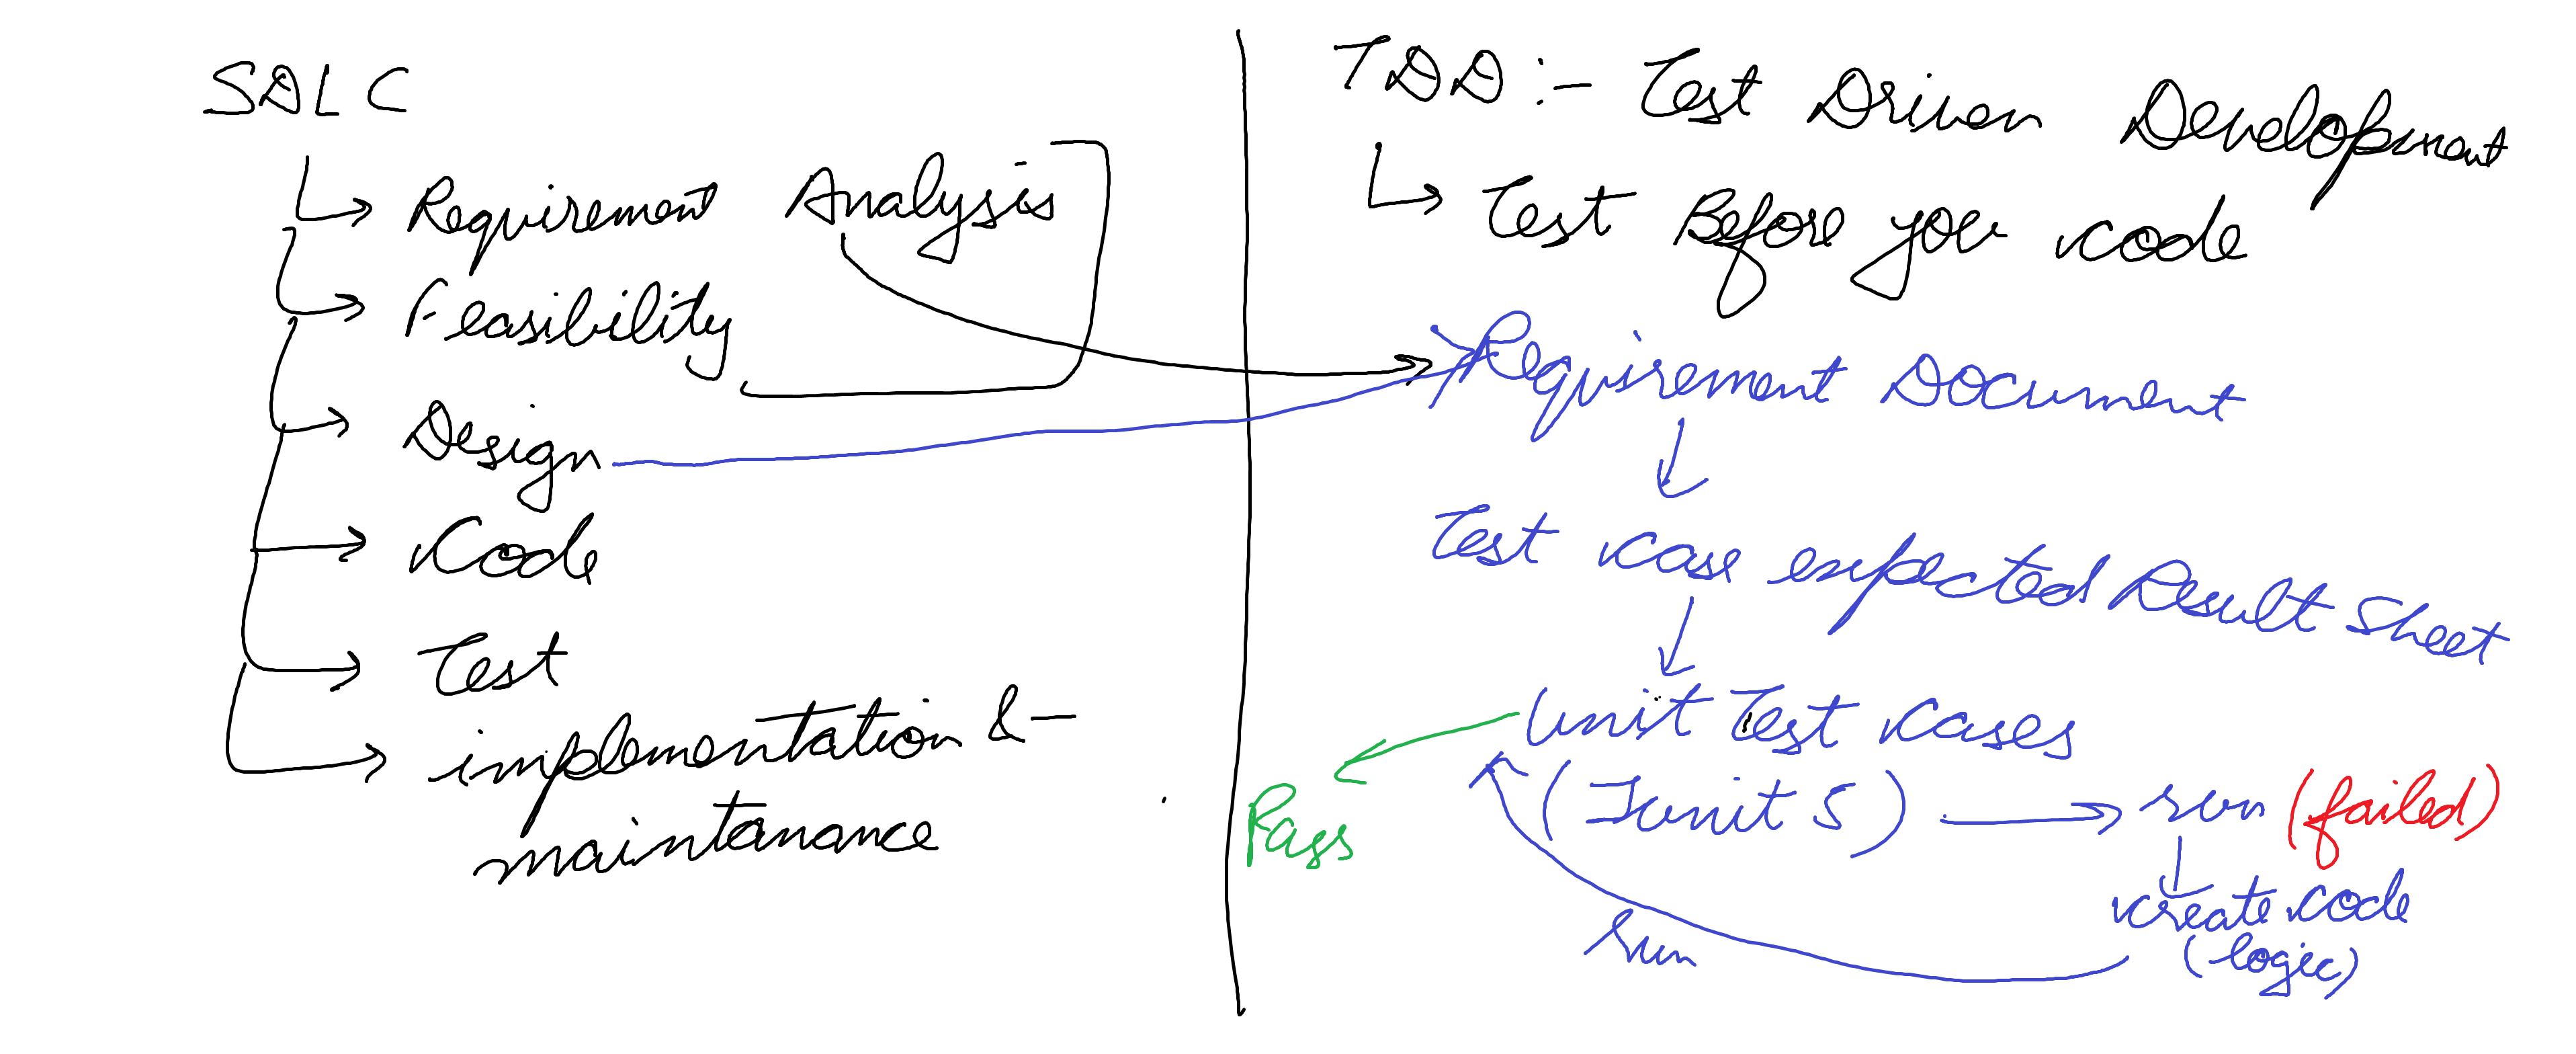 SDLC
Requirement Analysis
Feasibility
Design
Code
Test
implementation &
maintanance
TDD :- Test Driven Development
Test Before you code
Requirement Document
Test case expected Result Sheet
Unit Test cases
(Junit 5)
run (failed)
create code
(logic)
run
Pass